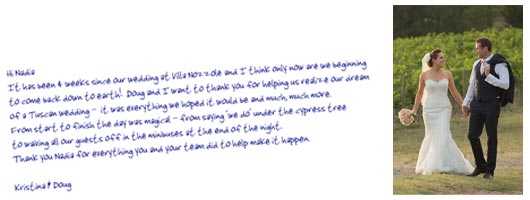 Hi Nadia
It has been 4 weeks since our wedding at Villa Nozzole and I think only now are we beginning
to come back down to earth! Doug and I want to thank you for helping us realize our dream
of a Tuscan wedding - it was everything we hoped it would be and much, much more.
From start to finish the day was magical - from saying 'we do' under the cypress tree
to waving all our guests off in the minibuses at the end of the night.
Thank you Nadia for everything you and your team did to help make it happen
Kristina & Doug